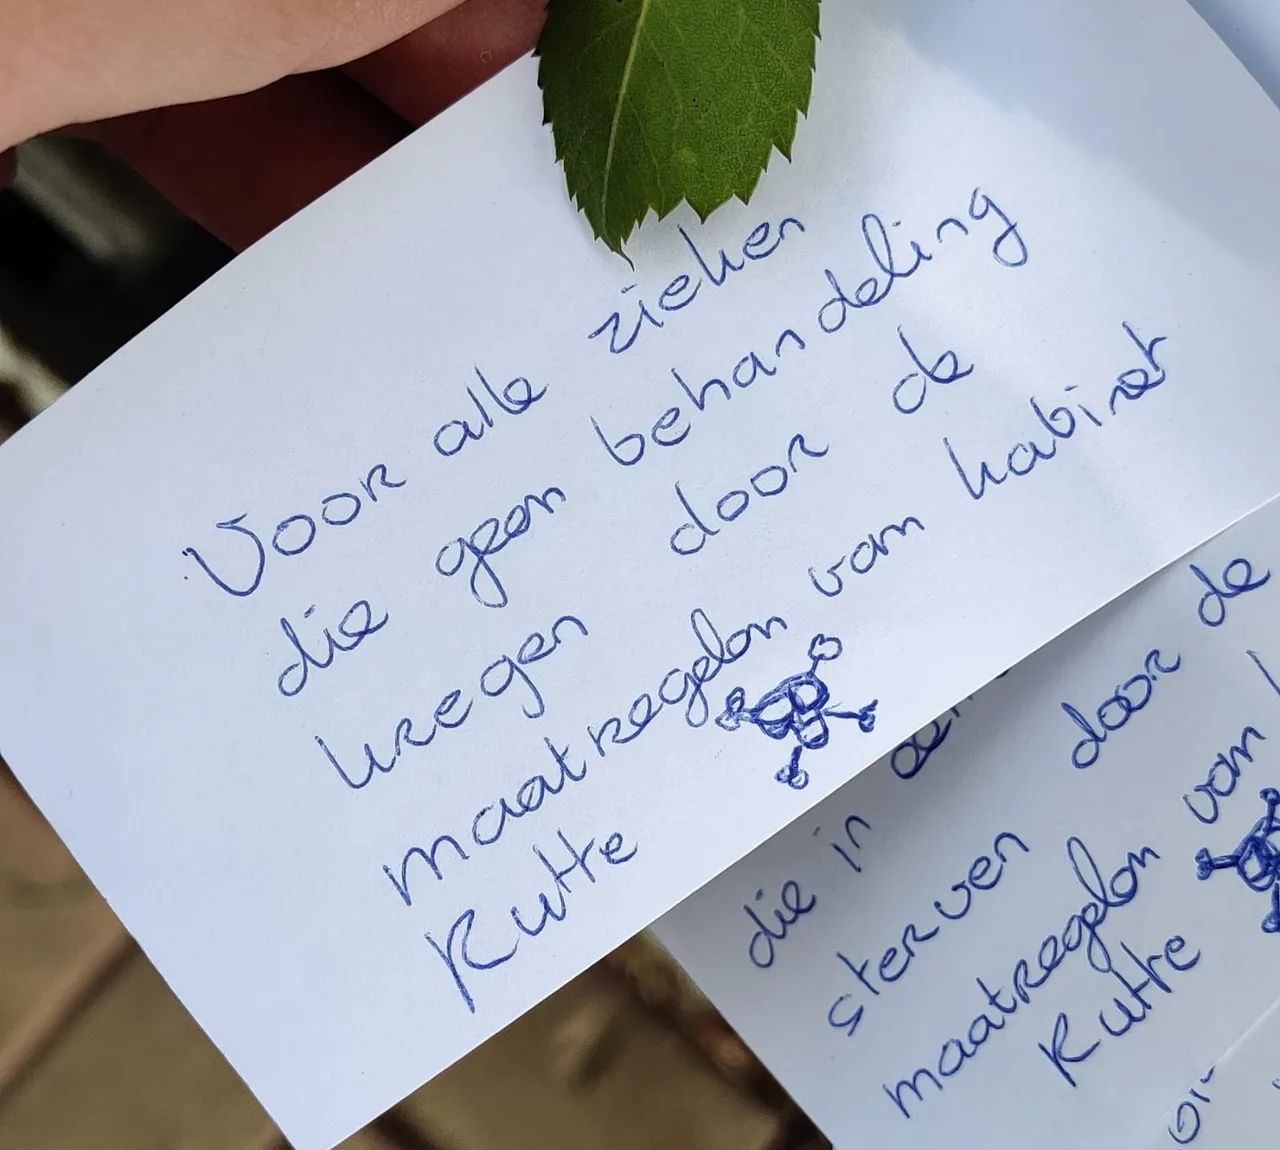 Voor alle zieken
die geen behandeling
kregen door de
maatregelen van kabinet
Rutte
die in
sterven door de
maatregelen van
Rutte